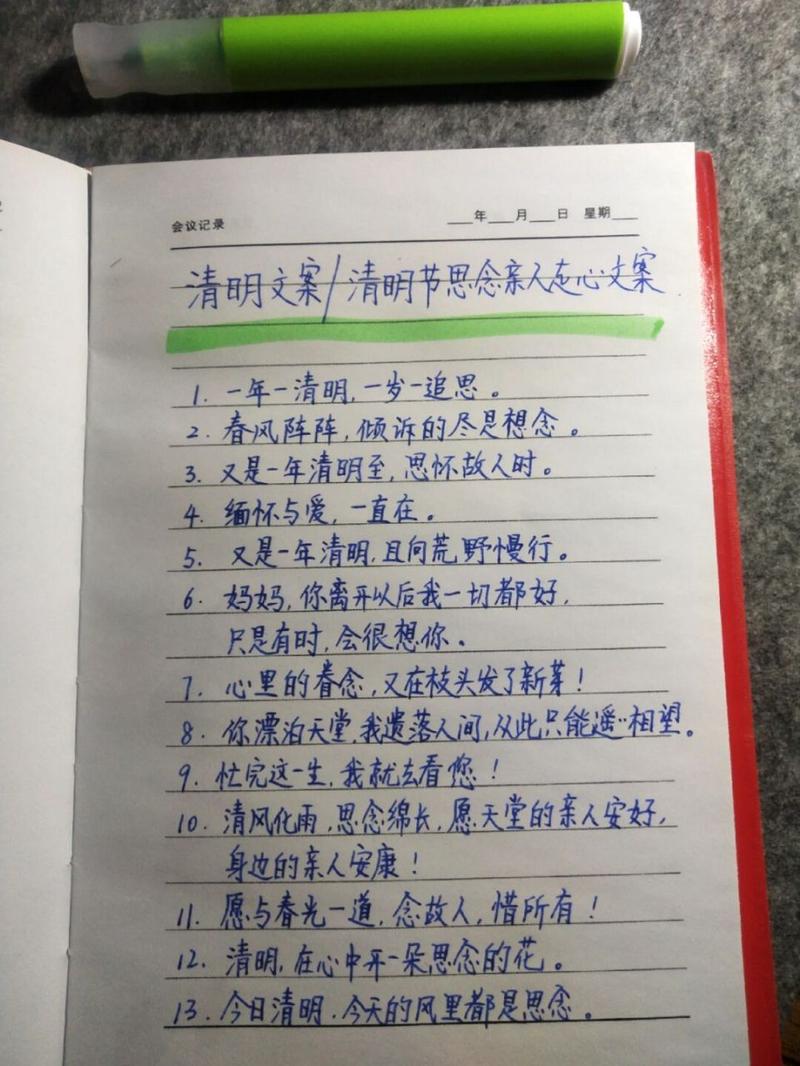 会议记录 ___年___月___日 星期___
清明文案/清明节思念亲人走心文案
1. 一年一清明,一岁一追思。
2. 春风阵阵,倾诉的尽是想念。
3. 又是一年清明至,思怀故人时。
4. 缅怀与爱,一直在。
5. 又是一年清明,且向荒野慢行。
6. 妈妈,你离开以后我一切都好,
只是有时,会很想你。
7. 心里的眷念,又在枝头发了新芽!
8. 你漂泊天堂,我遗落人间,从此只能遥‥相望。
9. 忙完这一生,我就去看您!
10. 清风化雨,思念绵长,愿天堂的亲人安好,
身边的亲人安康!
11. 愿与春光一道,念故人,惜所有!
12. 清明,在心中开一朵思念的花。
13. 今日清明.今天的风里都是思念。